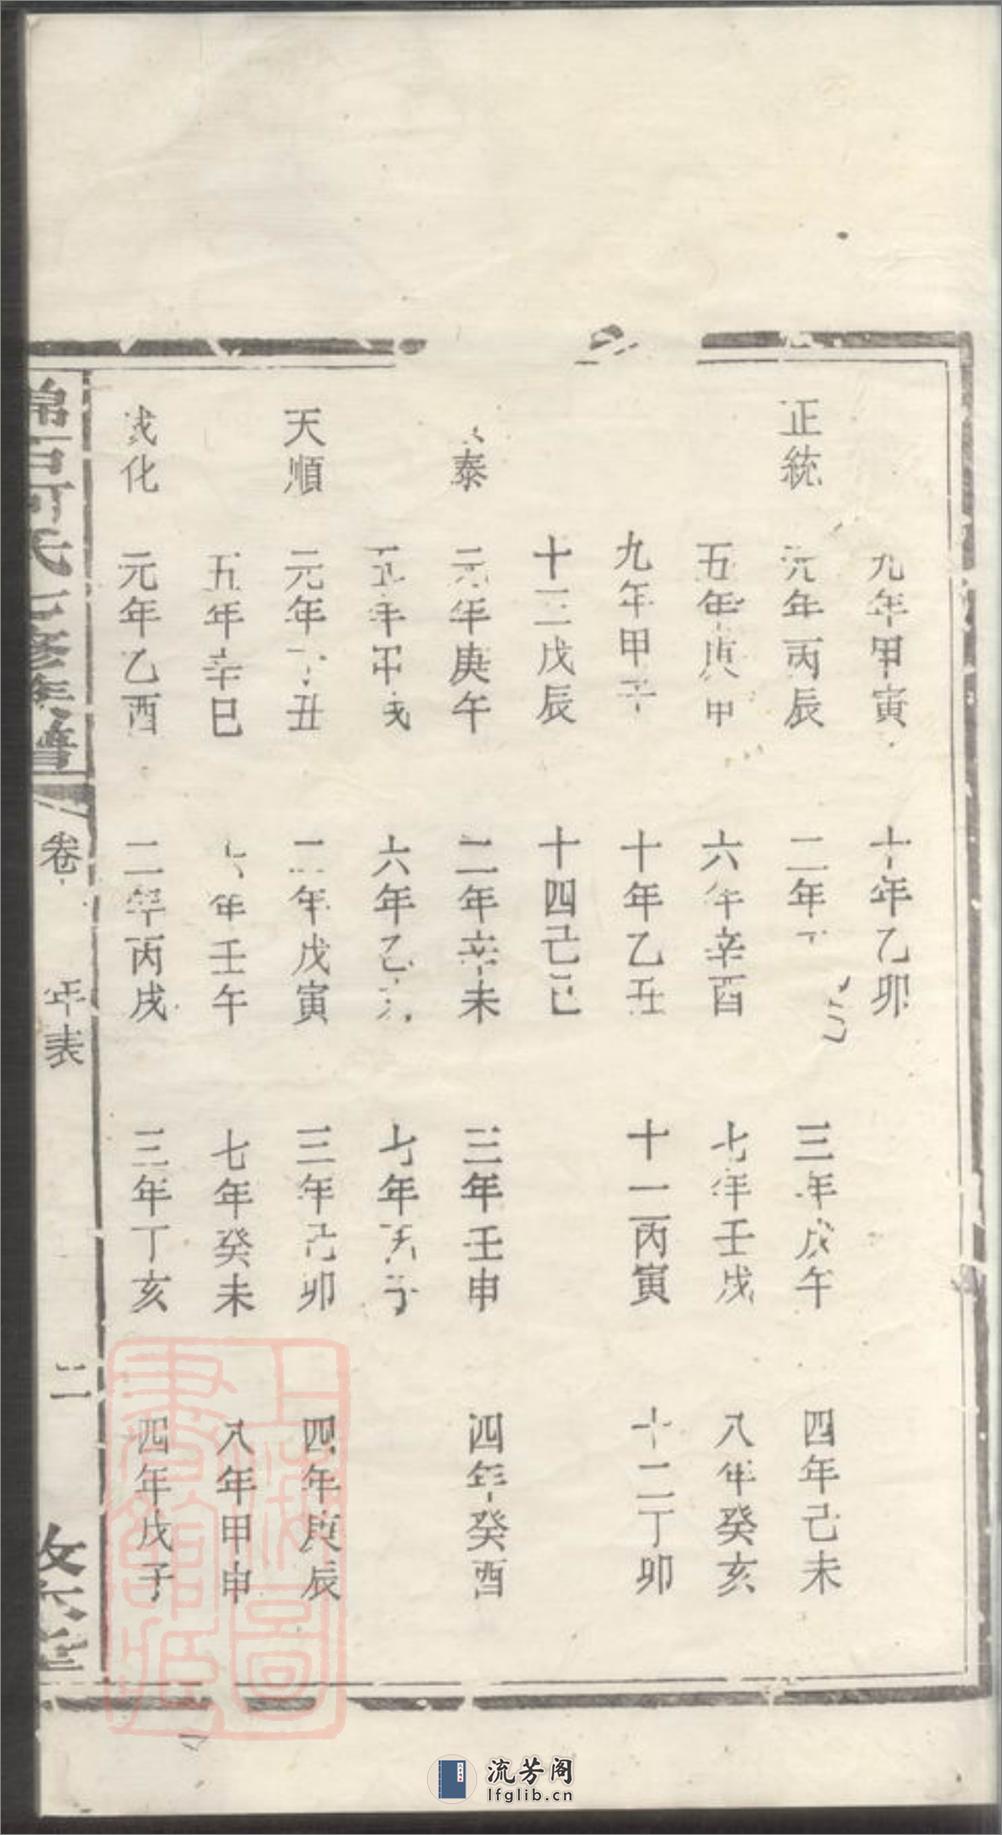 九年甲寅 十年乙卯
正統 元年丙辰 二年丁巳 三年戊午 四年己未
五年庚申 六年辛酉 七年壬戌 八年癸亥
九年甲子 十年乙丑 十一丙寅 十二丁卯
十三戊辰 十四己巳
泰 元年庚午 二年辛未 三年壬申 四年癸酉
五年甲戌 六年乙亥 七年丙子
天順 元年丁丑 二年戊寅 三年己卯 四年庚辰
五年辛巳 六年壬午 七年癸未 八年甲申
成化 元年乙酉 二年丙戌 三年丁亥 四年戊子
氏 修族譜 卷 年表 二
上海圖書館藏
流芳阁
lfglib.cn